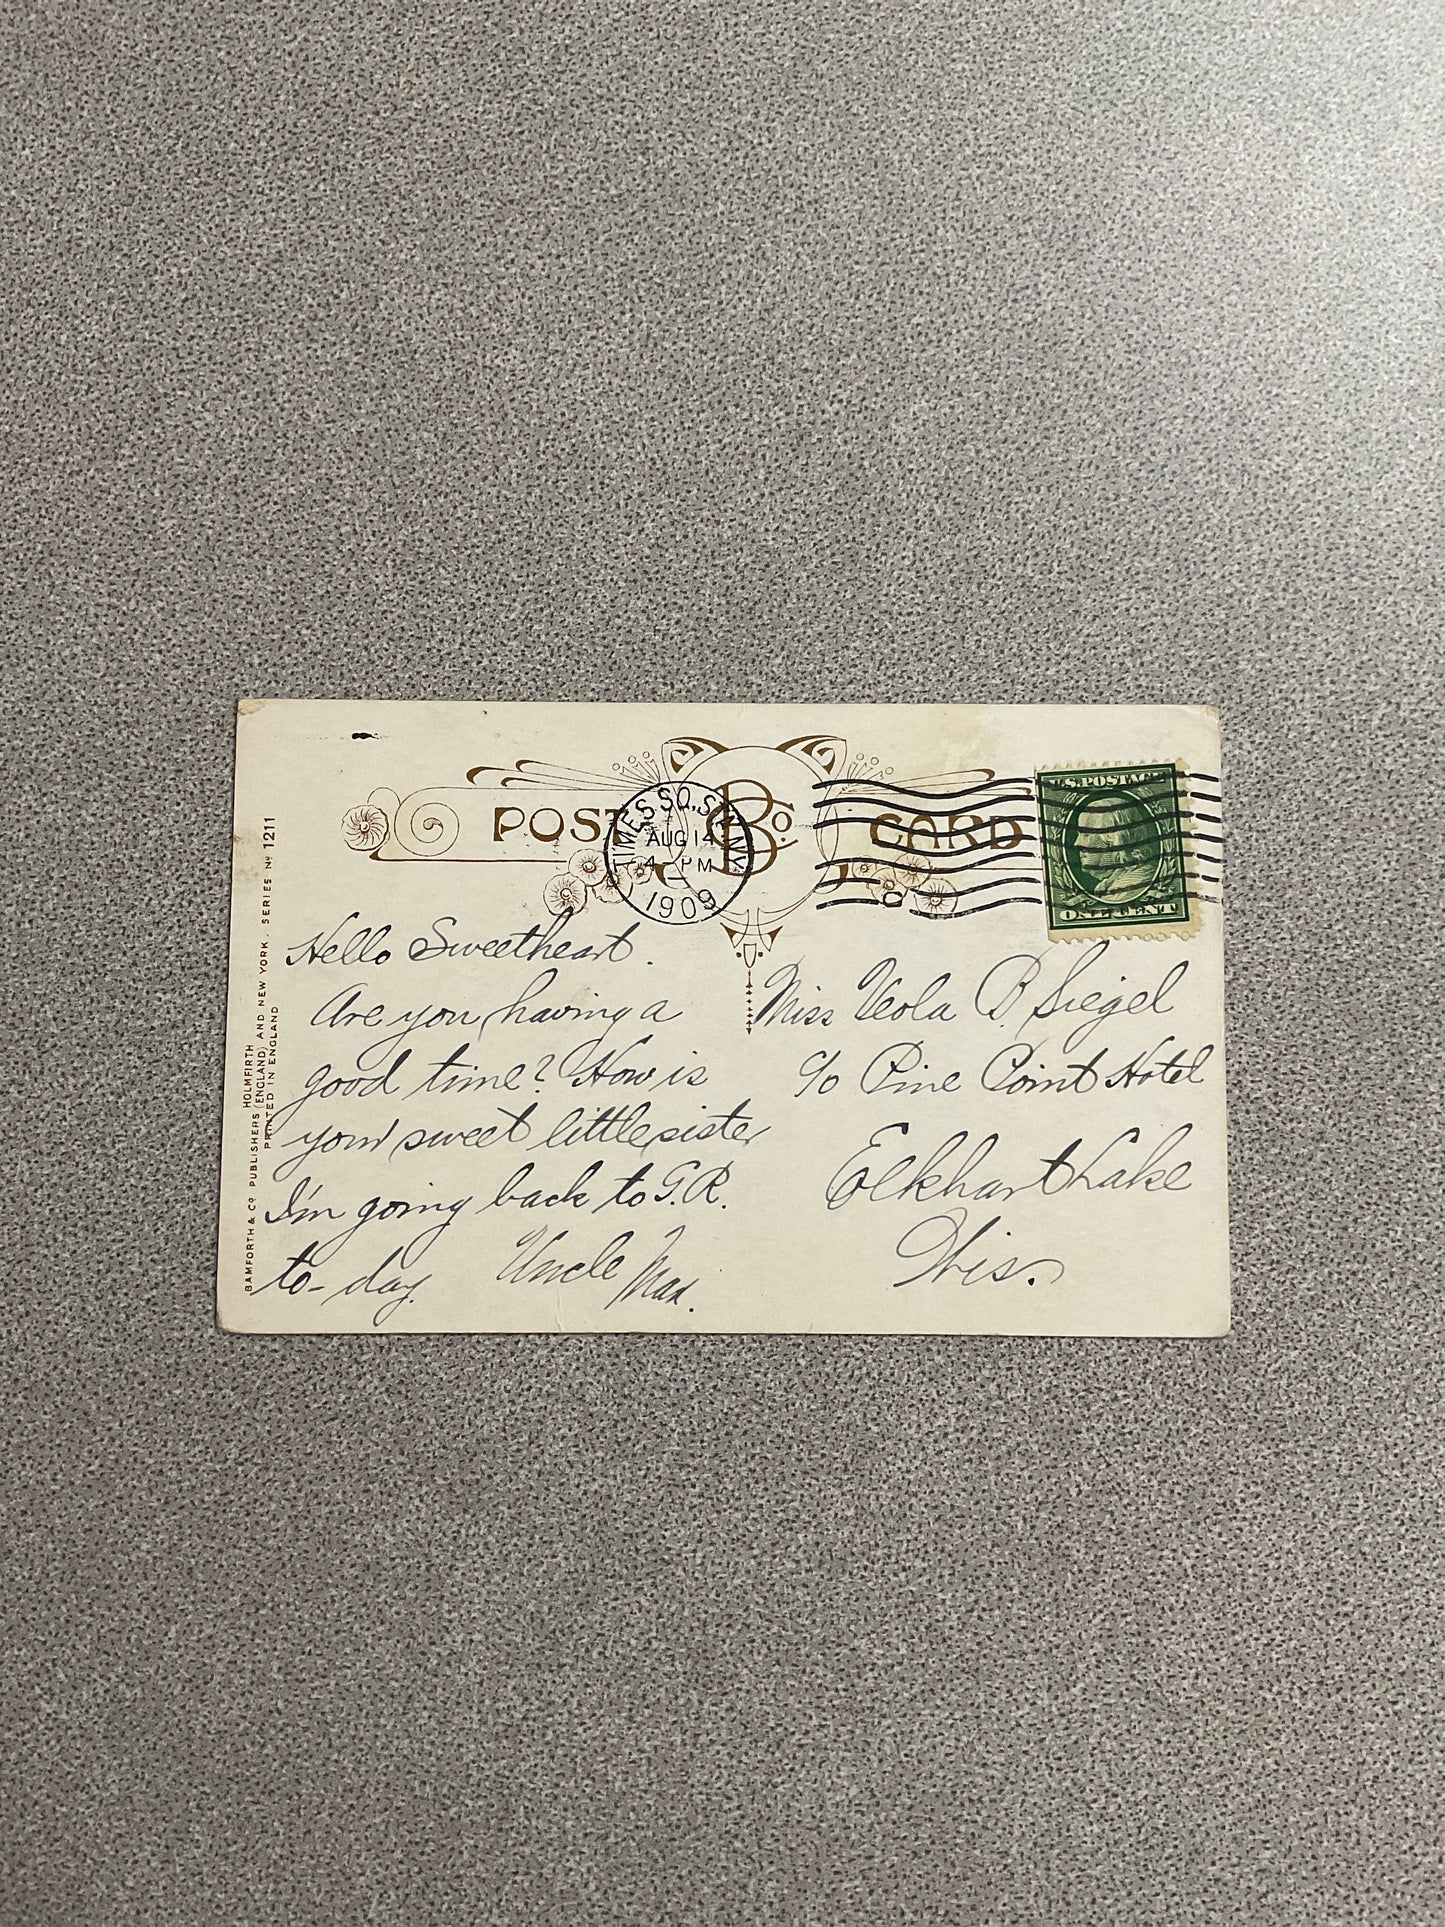 POST CARD
B Co.
TIMES SQ. STA. N.Y.
AUG 14
4 - PM
1909
C
U.S. POSTAGE
ONE CENT
BAMFORTH & Co PUBLISHERS (ENGLAND) AND NEW YORK. SERIES No 1211
HOLMFIRTH
PRINTED IN ENGLAND
Hello Sweetheart.
Are you having a
good time? How is
your sweet little sister
I'm going back to G.R.
to-day. Uncle Max.
Miss Veola B. Siegel
c/o Pine Point Hotel
Elkhart Lake
Wis.